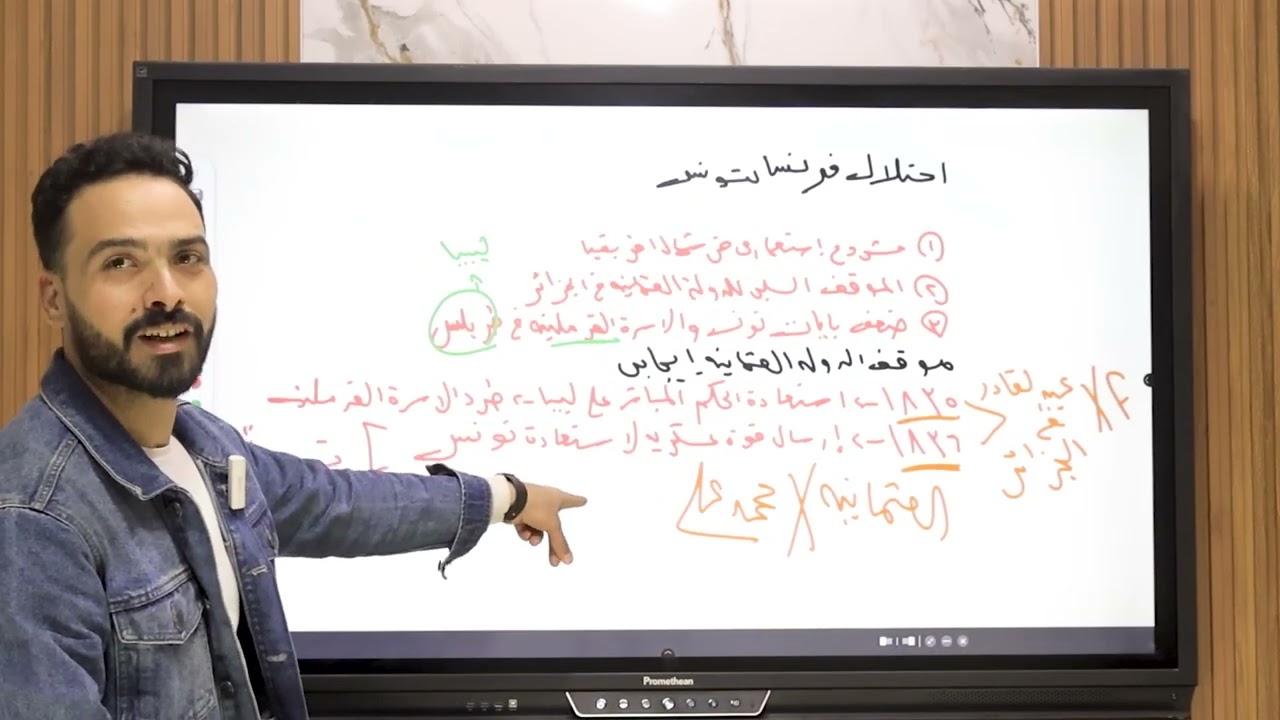 احتلال فرنسا لتونس
① مشروع إستعماري في شمال افريقيا
ليبيا
② الموقف السلبي للدولة العثمانيه في الجزائر
③ ضعف بايات تونس والاسرة القرمليه في طرابلس
موقف الدوله العثمانيه إيجابي
١٨٣٥ -> استعادة الحكم المباشر على ليبيا -> طرد الاسرة القرملية
١٨٣٦ -> إرسال قوة عسكريه لاستعادة تونس
عبد القادر X F
في
الجزائر
العثمانيه X محمد علي
Promethean